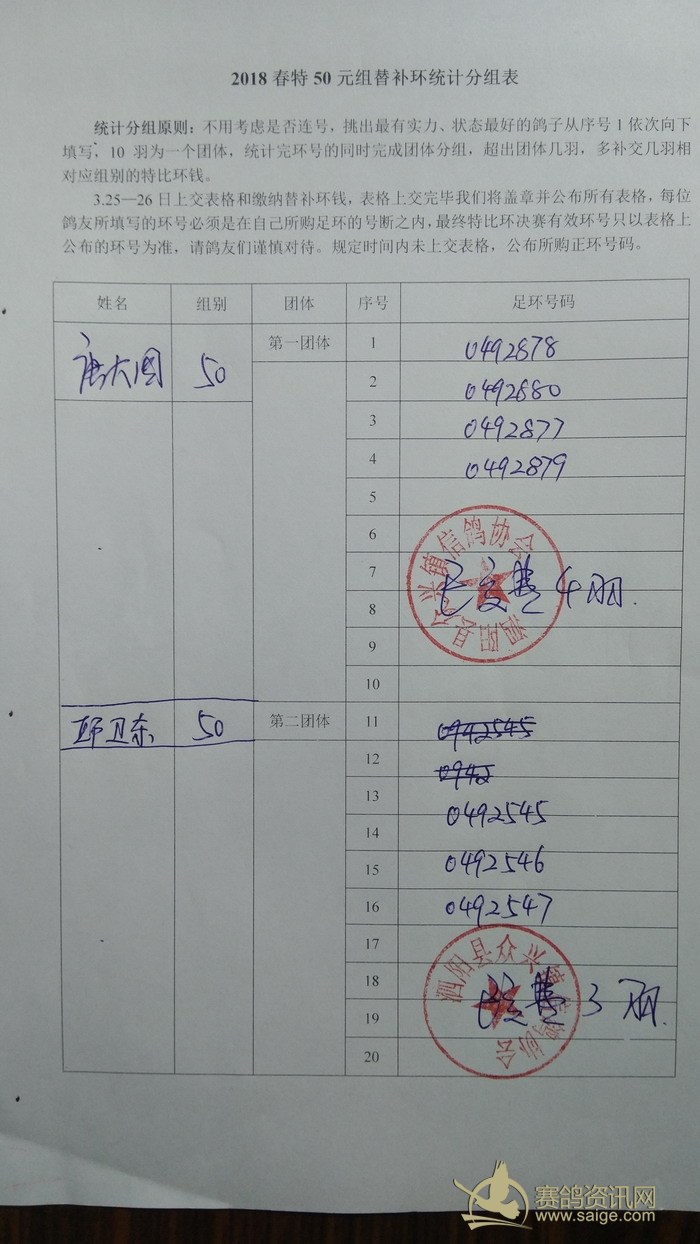 2018 春特 50 元组替补环统计分组表
统计分组原则：不用考虑是否连号，挑出最有实力、状态最好的鸽子从序号 1 依次向下
填写，10 羽为一个团体，统计完环号的同时完成团体分组，超出团体几羽，多补交几羽相
对应组别的特比环钱。
3.25—26 日上交表格和缴纳替补环钱，表格上交完毕我们将盖章并公布所有表格，每位
鸽友所填写的环号必须是在自己所购足环的号断之内，最终特比环决赛有效环号只以表格上
公布的环号为准，请鸽友们谨慎对待。规定时间内未上交表格，公布所购正环号码。
姓名 组别 团体 序号 足环号码
唐大国 50 第一团体 1 0492878
2 0492880
3 0492877
4 0492879
5
6
7
8
9
10
泗阳县众兴镇信鸽协会
已交 4羽.
卫东 50 第二团体 11 0942545
12 0942
13 0492545
14
15 0492546
16 0492547
17
18
19
20
泗阳县众兴镇信鸽协会
3 羽.
赛鸽资讯网
www.saige.com